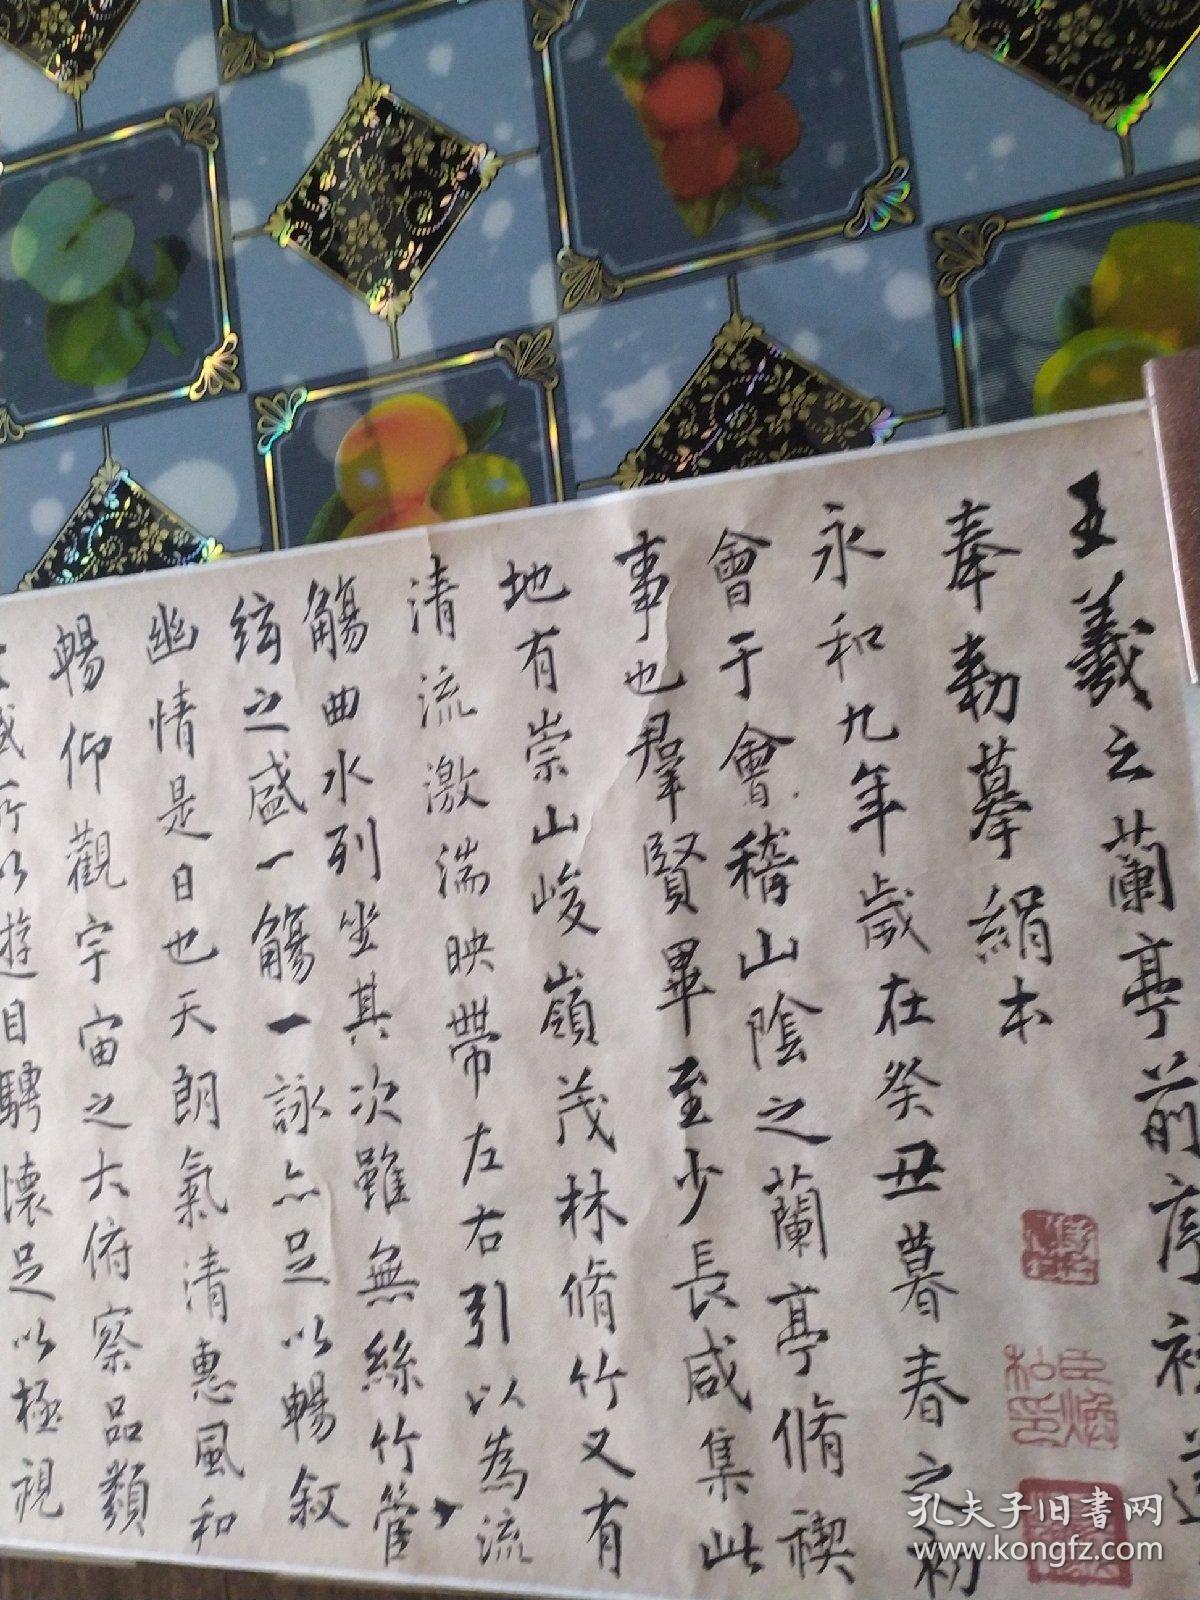 王羲之蘭亭前序禊
奉勅摹絹本
永和九年歲在癸丑暮春之初
會于會稽山陰之蘭亭脩禊
事也羣賢畢至少長咸集此
地有崇山峻嶺茂林脩竹又有
清流激湍映帶左右引以為流
觴曲水列坐其次雖無絲竹管
絃之盛一觴一詠亦足以暢敘
幽情是日也天朗氣清惠風和
暢仰觀宇宙之大俯察品類
之盛所以遊目騁懷足以極視
孔夫子旧书网
www.kongfz.com